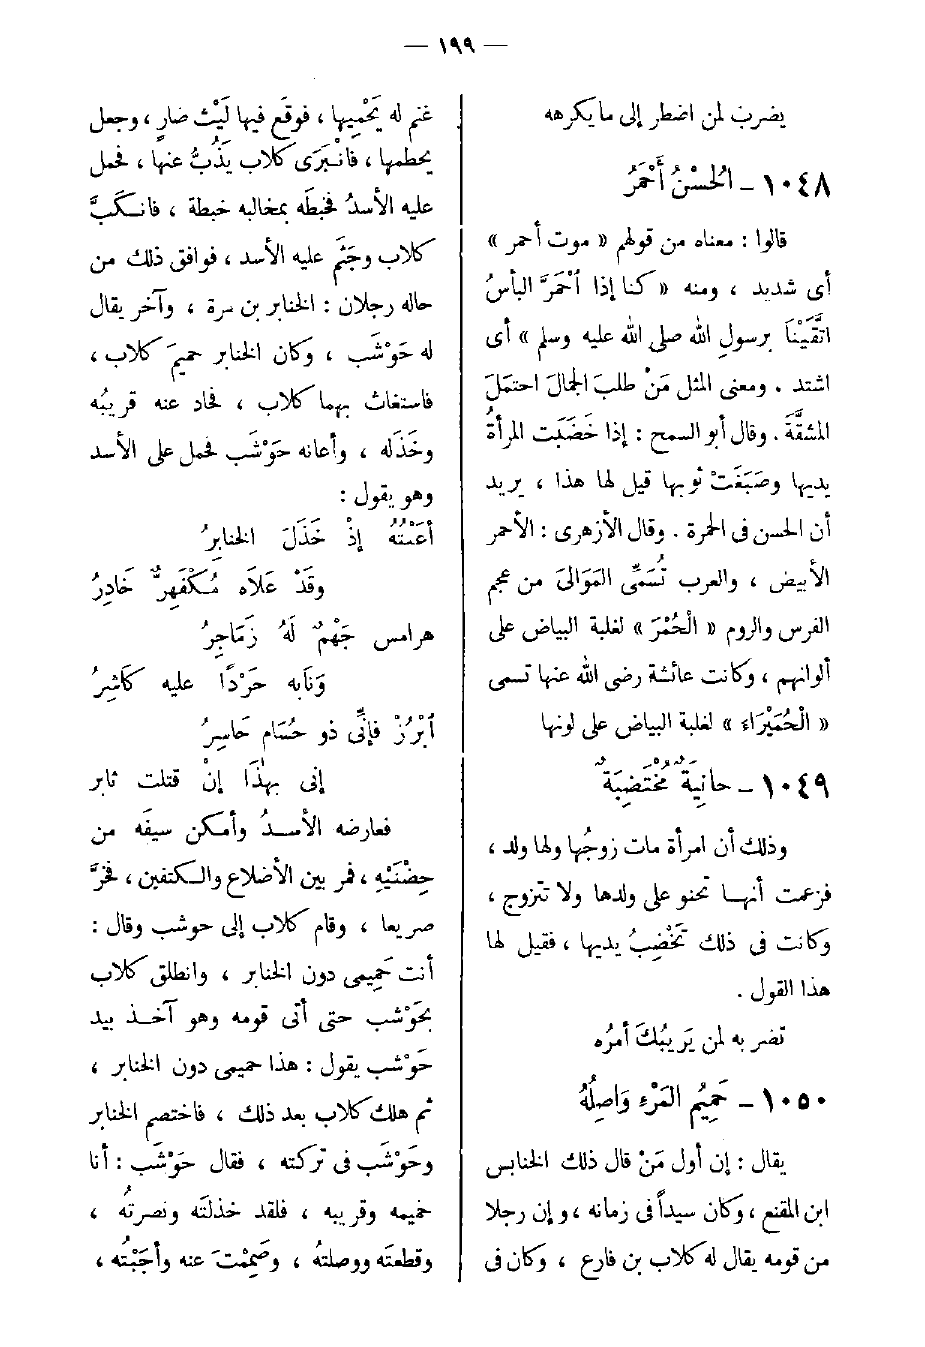 — ١٩٩ —
يضرب لمن اضطر إلى ما يكرهه
١٠٤٨ – الْحُسْنُ أَحْمَرُ
قالوا : معناه من قولهم « موت أحمر »
أى شديد ، ومنه « كنا إذا أحْمَرَّ البأسُ
اتقَّيْنَا برسولِ الله صلى الله عليه وسلم » أى
اشتد . ومعنى المثل مَنْ طلبَ الجمالَ احتمَلَ
المشقَّةَ . وقال أبو السمح : إذا خَضَبَت المرأةُ
يديها وصَبَغَتْ ثوبها قيل لها هذا ، يريد
أن الحسن فى الحمرة . وقال الأزهرى : الأحمر
الأبيض ، والعرب تُسَمِّى المَوَالىَ من عجم
الفرس والروم « الْحُمْرَ » لغلبة البياض على
ألوانهم ، وكانت عائشة رضى الله عنها تسمى
« الْحُمَيْرَاء » لغلبة البياض على لونها
١٠٤٩ – حانِيَةٌ مُخْتَضِبَةٌ
وذلك أن امرأة مات زوجُها ولها ولد ،
فزعمت أنهـا تحنو على ولدها ولا تتزوج ،
وكانت فى ذلك تَخْضِبُ يديها ، فقيل لها
هذا القول .
تضربه لمن يَرِيبُكَ أمرُه
١٠٥٠ – حَمِيُم المَرْءِ وَاصِلُهُ
يقال : إن أول مَنْ قال ذلك الخنابس
ابن المقنع ، وكان سيداً فى زمانه ، وإن رجلا
من قومه يقال له كلاب بن فارع ، وكان فى
غنم له يَحْمِيها ، فوقَع فيها لَيْث ضارٍ ، وجعل
يحطمها ، فانْبَرَى كلاب يَذُبُّ عنها ، فحمل
عليه الأسدُ فخبطَه بمخالبه خبطة ، فانـكبَّ
كلاب وجَثَم عليه الأسد ، فوافق ذلك من
حاله رجلان : الخنابر بن مرة ، وآخر يقال
له حَوْشَب ، وكان الخنابر حميمَ كلاب ،
فاستغاث بهما كلاب ، فحاد عنه قريبُه
وخَذَله ، وأعانه حَوْشَب فحمل على الأسد
وهو يقول :
أعَنْتُهُ إذْ خَذَلَ الخنابِرُ
وقَدْ عَلاَه مُـكْفَهِرٌّ خَادِرُ
هرامس جَهْمٌ لَهُ زَمَاجِرُ
وَنَابه حَرْدًا عليه كاشِرُ
ابْرُزْ فإنِّى ذو حُسَام حَاسِرُ
إنى بهٰذَا إنْ قتلت ثابر
فعارضه الأسـدُ وأمـكن سيفَه من
حِضْنَيْهِ ، فمر بين الأضلاع والـكتفين ، فخرَّ
صريعا ، وقام كلاب إلى حوشب وقال :
أنت حَمِيمى دون الخنابر ، وانطلق كلاب
بحَوْشب حتى أتى قومه وهو آخـذ بيد
حَوْشب يقول : هذا حميمى دون الخنابر ،
ثم هلك كلاب بعد ذلك ، فاختصم الخنابر
وحَوْشَب فى تركته ، فقال حَوْشَب : أنا
حميمه وقريبه ، فلقد خذلتَه ونصرتُه ،
وقطعتَه ووصلتهُ ، وصَمِمْتَ عنه وأجَبْتُه ،